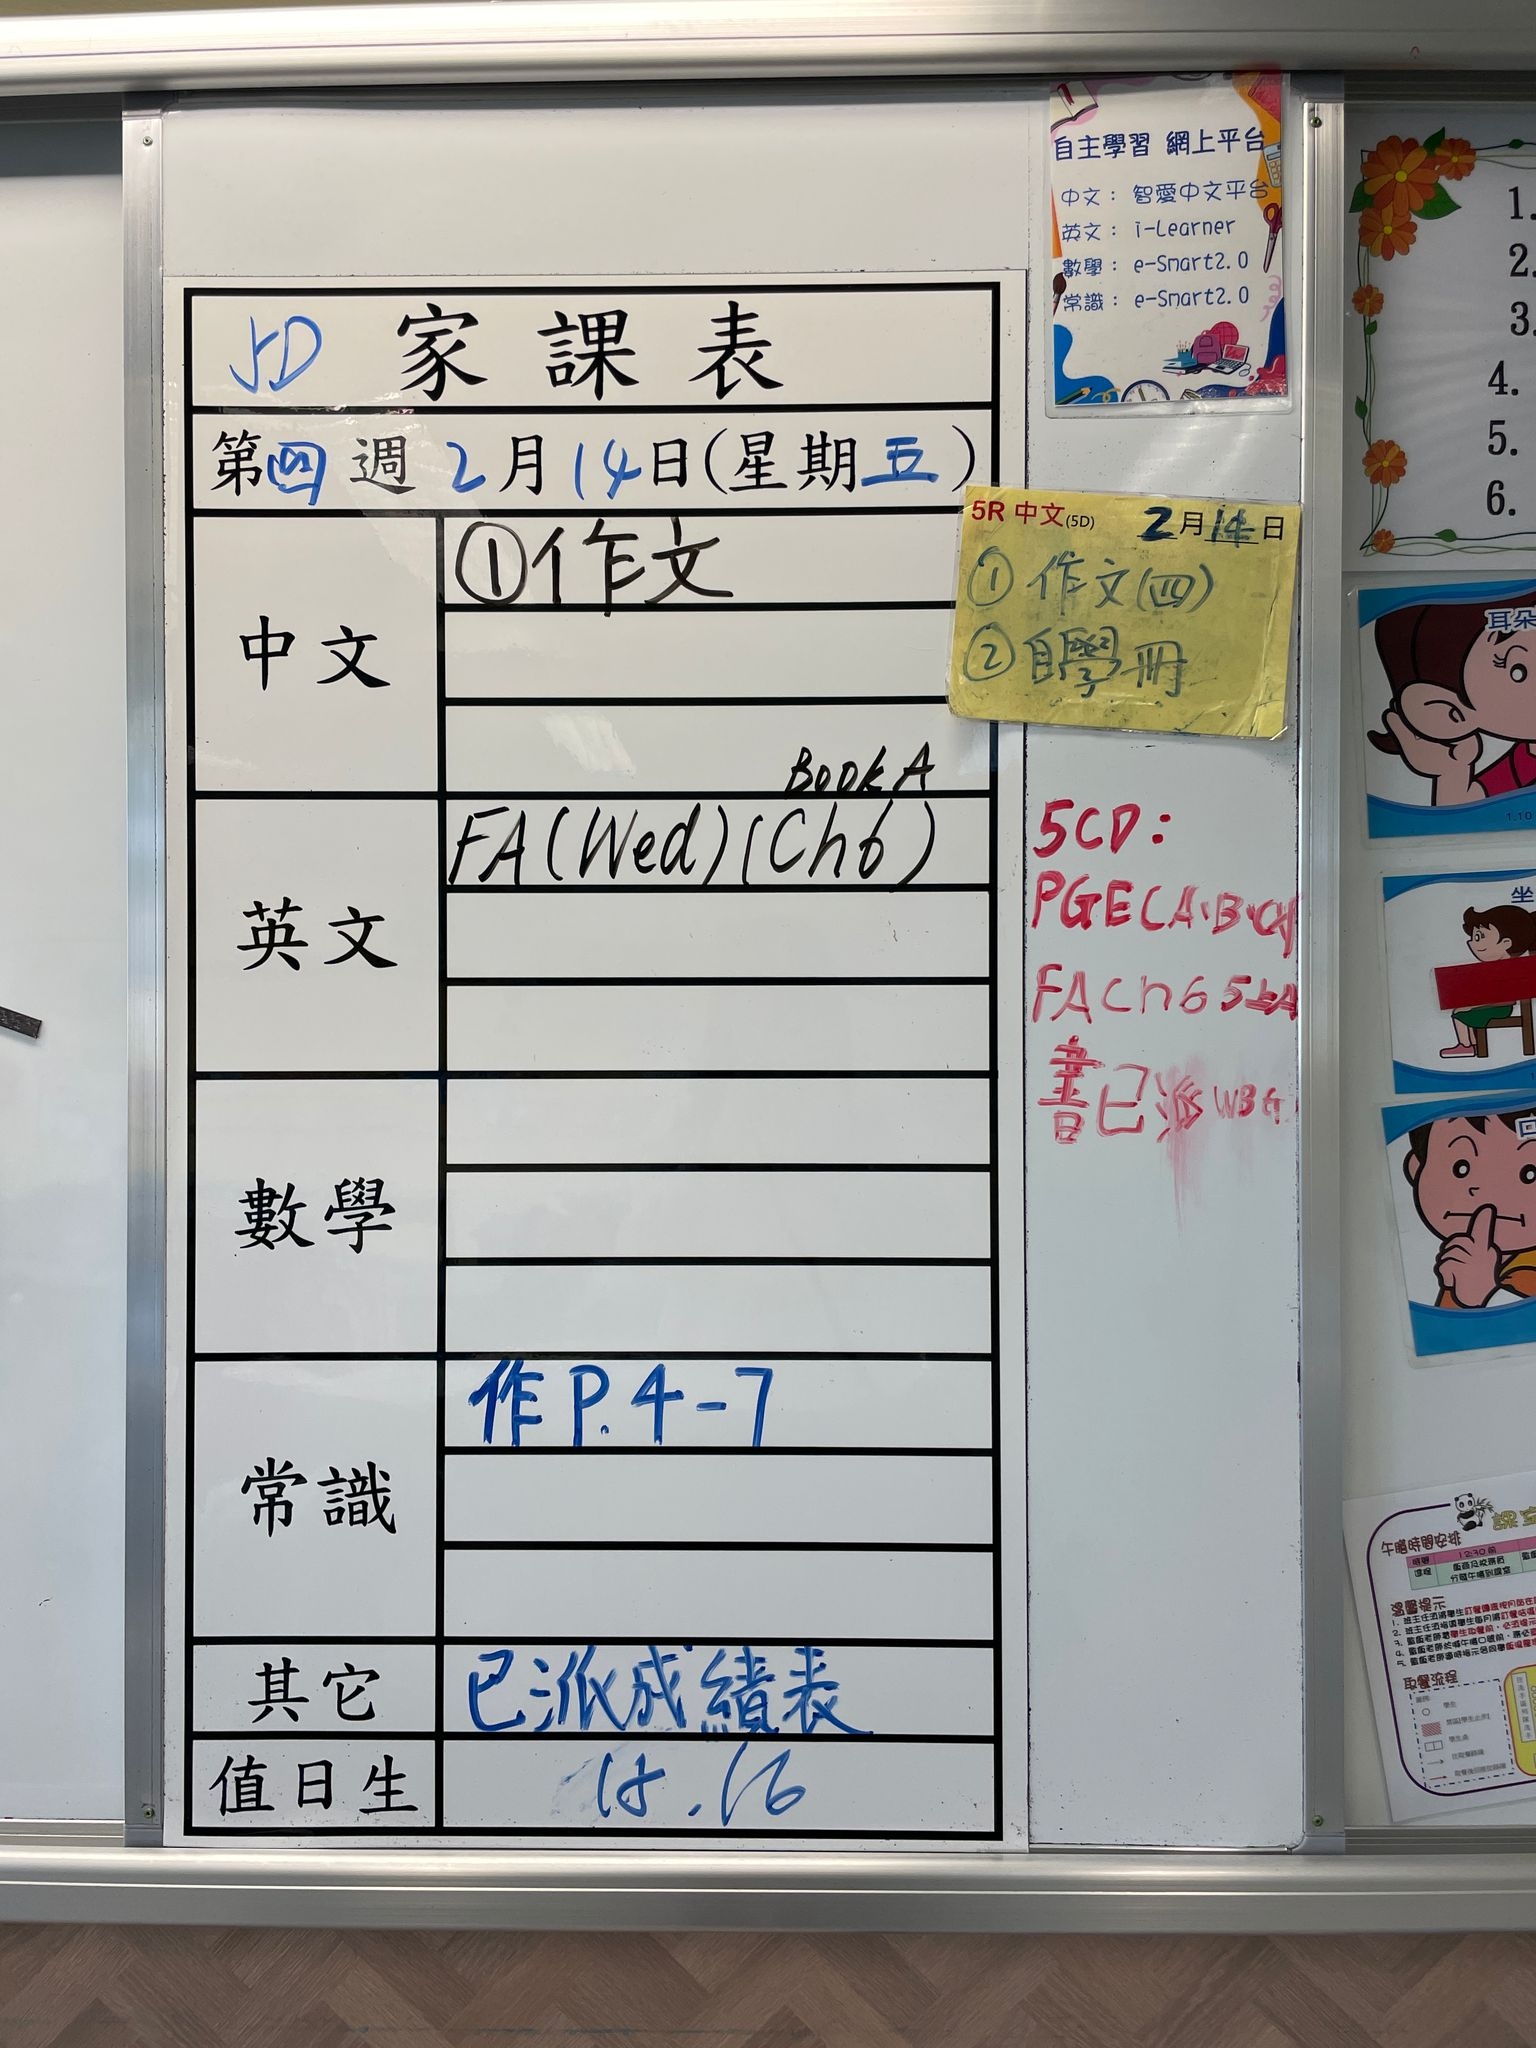 自主學習 網上平台
中文： 智愛中文平台
英文： i-Learner
數學： e-Smart2.0
常識： e-Smart2.0
5D 家課表
第四週 2月14日(星期五)
中文
①作文
5R 中文(5D) 2月14日
①作文(四)
②自學冊
英文
Book A
FA(Wed)(Ch6)
5CD:
PGE(A、B、
FA Ch6 5上A
書已派 WBG
數學
常識
作P.4-7
其它
已派成績表
值日生
15.16
1.
2.
3.
4.
5.
6.
耳朵
1.10
坐
口
午膳時間安排
12:30前
溫馨提示
取餐流程